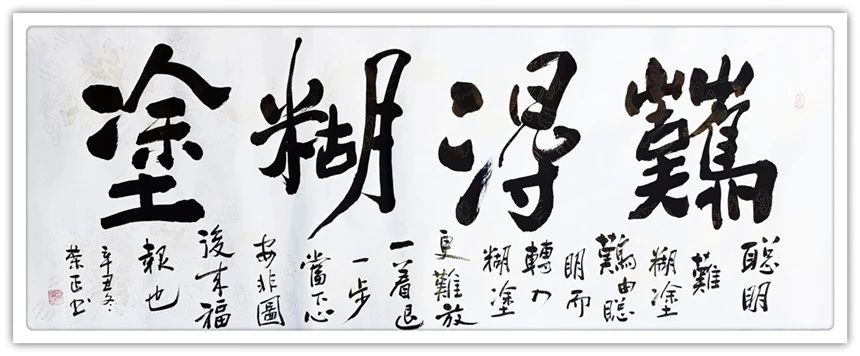 難得糊塗
聰明
難
糊塗
難由聰
明而
轉入
糊塗
更難放
一着退
一步
當下心
安非圖
後來福
報也
辛丑冬
荣正书